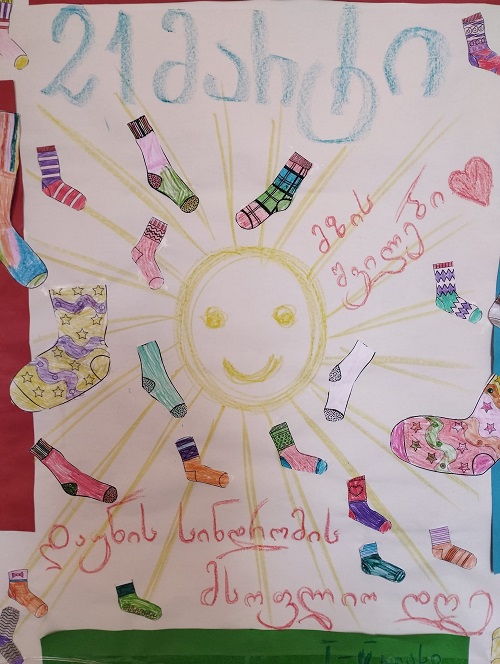 21 მარტი
მზის
შვილები
დაუნის სინდრომის
მსოფლიო დღე